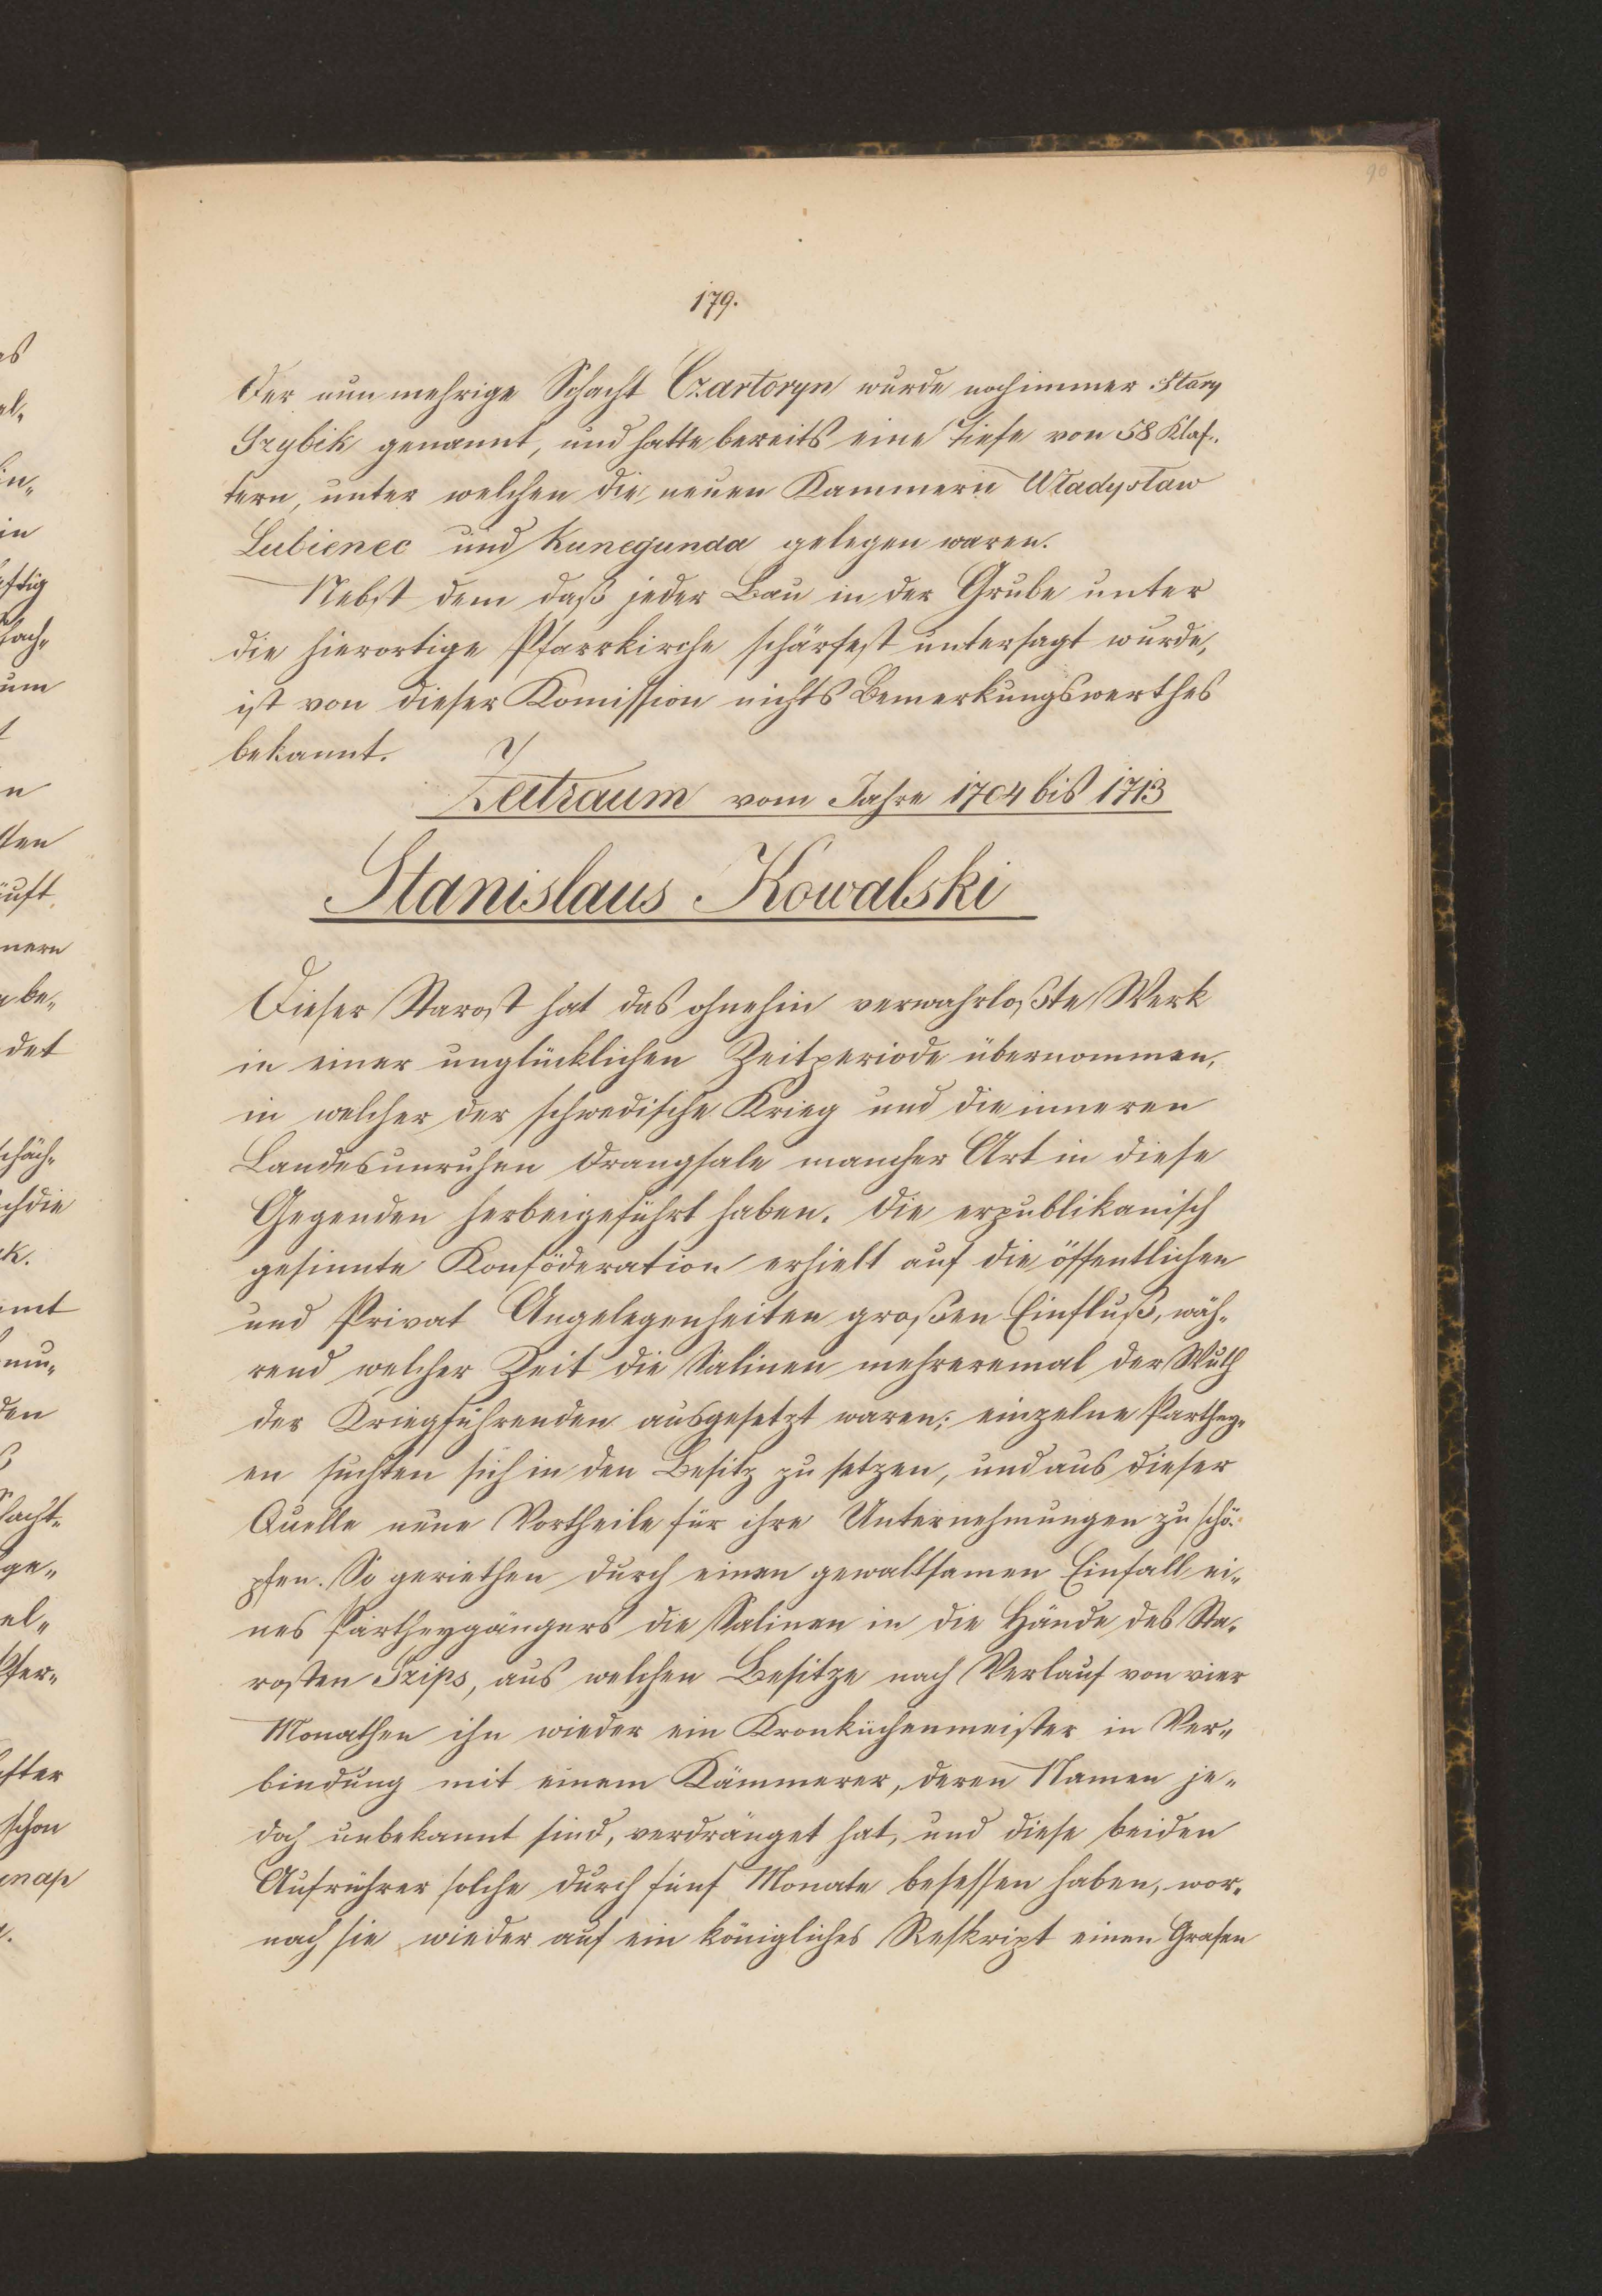 90
179.
Der nunmehrige Schacht Czartoryn wurde nochimmer Stary
Grzybik genannt, und hatte bereits eine Tiefe von 58 Klaf-
tern, unter welchen die neuen Kammern Władysław
Lubienec und Kunegunda gelegen waren.
Nebst dem daß jeder Bau in der Grube unter
die hierortige Pfarrkirche schärfest untersagt wurde,
ist von dieser Komission nichts Bemerkungswerthes
bekannt.
Zeitraum vom Jahre 1704 bis 1713
Stanislaus Kowalski
Dieser Starost hat das ohnehin verwahrloßte Werk
in einer unglücklichen Zeitperiode übernommen,
in welcher der schwedische Krieg und die inneren
Landesunruhen Drangsale mancher Art in diese
Gegenden herbeigeführt haben. Die erpublikanisch
gesinnte Konföderation erhielt auf die öffentlichen
und Privat Angelegenheiten großen Einfluß, wäh-
rend welcher Zeit die Salinen mehreremal der Wuth
der Kriegführenden ausgesetzt waren; einzelne Parthey-
en suchten sich in den Besitz zu setzen, und aus dieser
Quelle neue Vortheile für ihre Unternehmungen zu schö-
pfen. So geriethen durch einen gewaltsamen Einfall ei-
nes Partheygängers die Salinen in die Hände des Sta-
rosten Szips, aus welchen Besitze nach Verlauf von vier
Monathen ihn wieder ein Kronküchenmeister in Ver-
bindung mit einem Kämmerer, deren Namen je-
doch unbekannt sind, verdränget hat, und diese beiden
Aufrührer solche durch fünf Monate besessen haben, wor-
nach sie wieder auf ein königliches Reskript einen Grafen